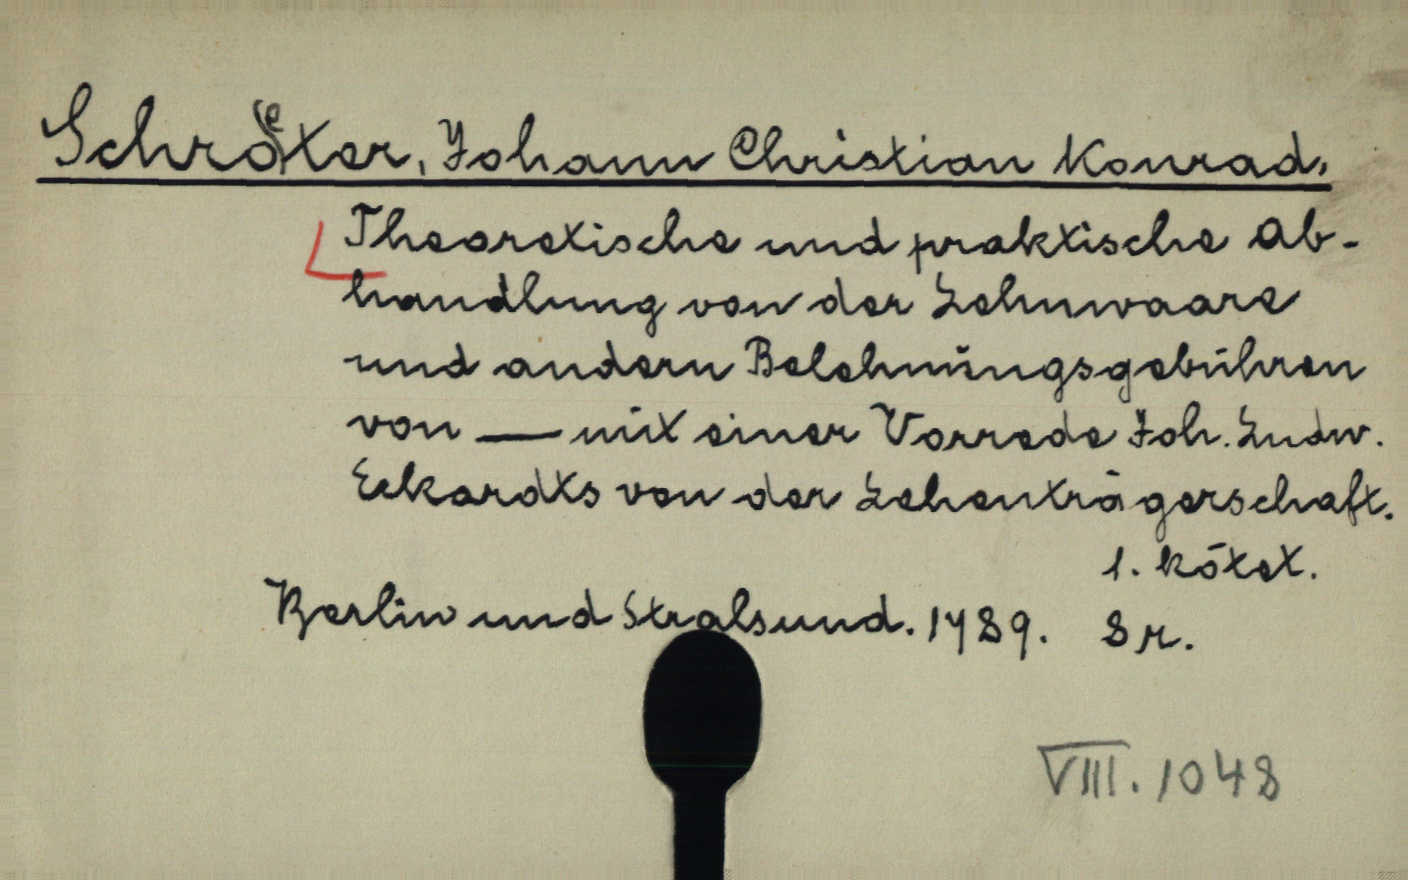 Schröter, Johann Christian Konrad.
Theoretische und praktische Ab-
handlung von der Lehnwaare
und andern Belehnungsgebühren
von — mit einer Vorrede Joh. Ludw.
Eckardts von der Lehenträgerschaft.
1. kötet.
Berlin und Stralsund. 1789. 8 r.
VIII. 1048